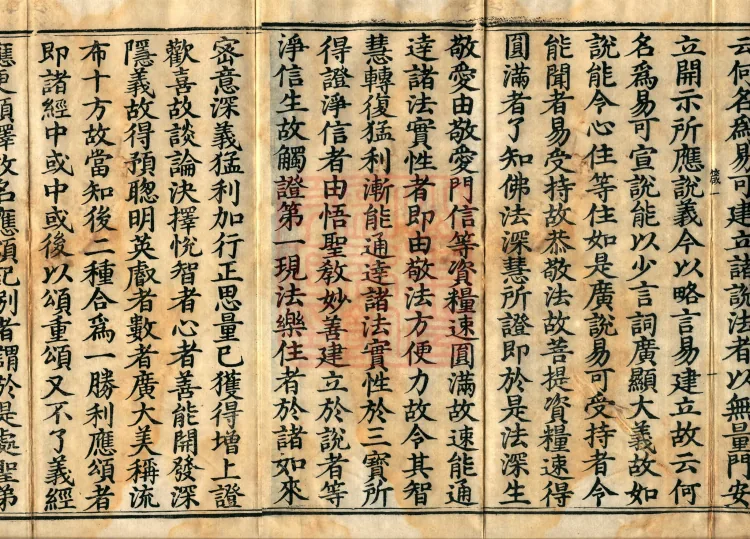 云何名為易可建立諸說法者以無量門安
立開示所應說義今以略言易建立故云何
名爲易可宣說能以少言詞廣顯大義故如
說能令心住等住如是廣說易可受持者令
能聞者易受持故恭敬法故菩提資糧速得
圓滿者了知佛法深慧所證即於是法深生
敬愛由敬愛門信等資糧速圓滿故速能通
達諸法實性者即由敬法方便力故令其智
慧轉復猛利漸能通達諸法實性於三寳所
得證淨信者由悟聖教妙善建立於說者等
淨信生故觸證第一現法樂住者於諸如來
密意深義猛利加行正思量已獲得增上證
歡喜故談論決擇悅智者心者善能開發深
隱義故得預聰明英叡者數者廣大美稱流
布十方故當知後二種合爲一勝利應頌者
即諸經中或中或後以頌重頌又不了義經
應更頌釋故名應頌記別者謂於是處聖弟